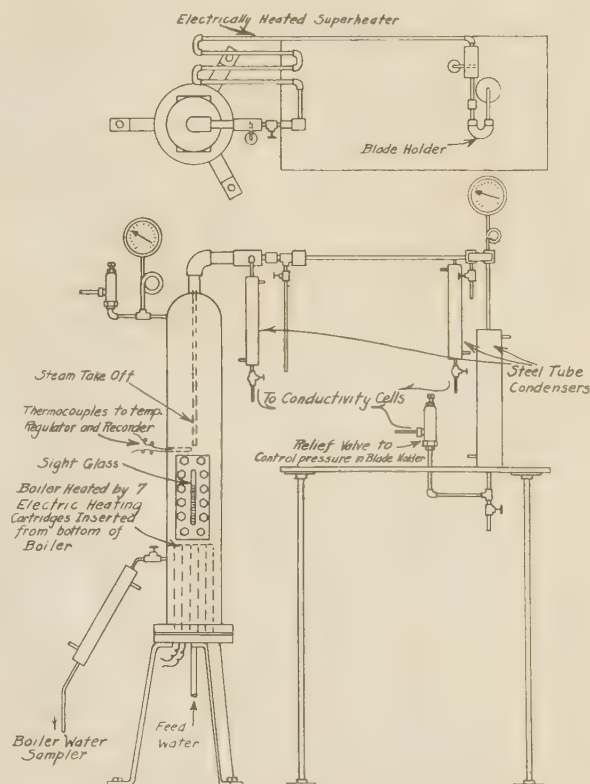 Electrically Heated Superheater
Blade Holder
Steam Take Off
Thermocouples to temp.
Regulator and Recorder
Sight Glass
Boiler Heated by 7
Electric Heating
Cartridges Inserted
from bottom of
Boiler
Steel Tube
Condensers
To Conductivity Cells
Relief Valve to
Control pressure in Blade Holder
Boiler Water
Sampler
Feed
Water